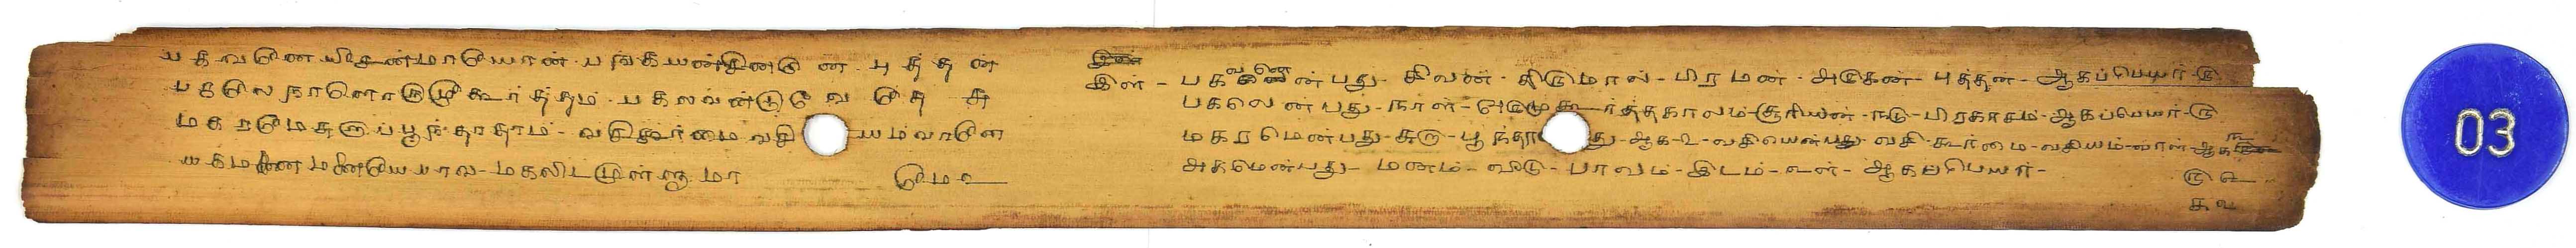 பகவனே யீசன்மாயோன் பங்கயன்சினனே புத்தன்
பகலே நாளொருமுகூர்த்தம் பகலவன்நடுவே தேசு
மகரமேசுறுப்பூந்தாதாம் வசிகூர்மை வசியம்வாளே
யகமனமனையேபாவ மகலிடமுள்ளுமா
இன் - பகவனென்பது - சிவன் - திருமால் - பிரமன் - அருகன் - புத்தன் - ஆகப்பெயர் - ரு
பகலென்பது - நாள் - ஒருமுகூர்த்தகாலம் - சூரியன் - நடு - பிரகாசம் - ஆகப்பெயர் - ரு
மகரமென்பது - சுறு - பூந்தாது - ஆக - உ - வசியென்பது - வசி - கூர்மை - வசியம் - வாள் - ஆக ௩
அகமென்பது - மனம் - வீடு - பாவம் - இடம் - உள் - ஆகப்பெயர் -
03